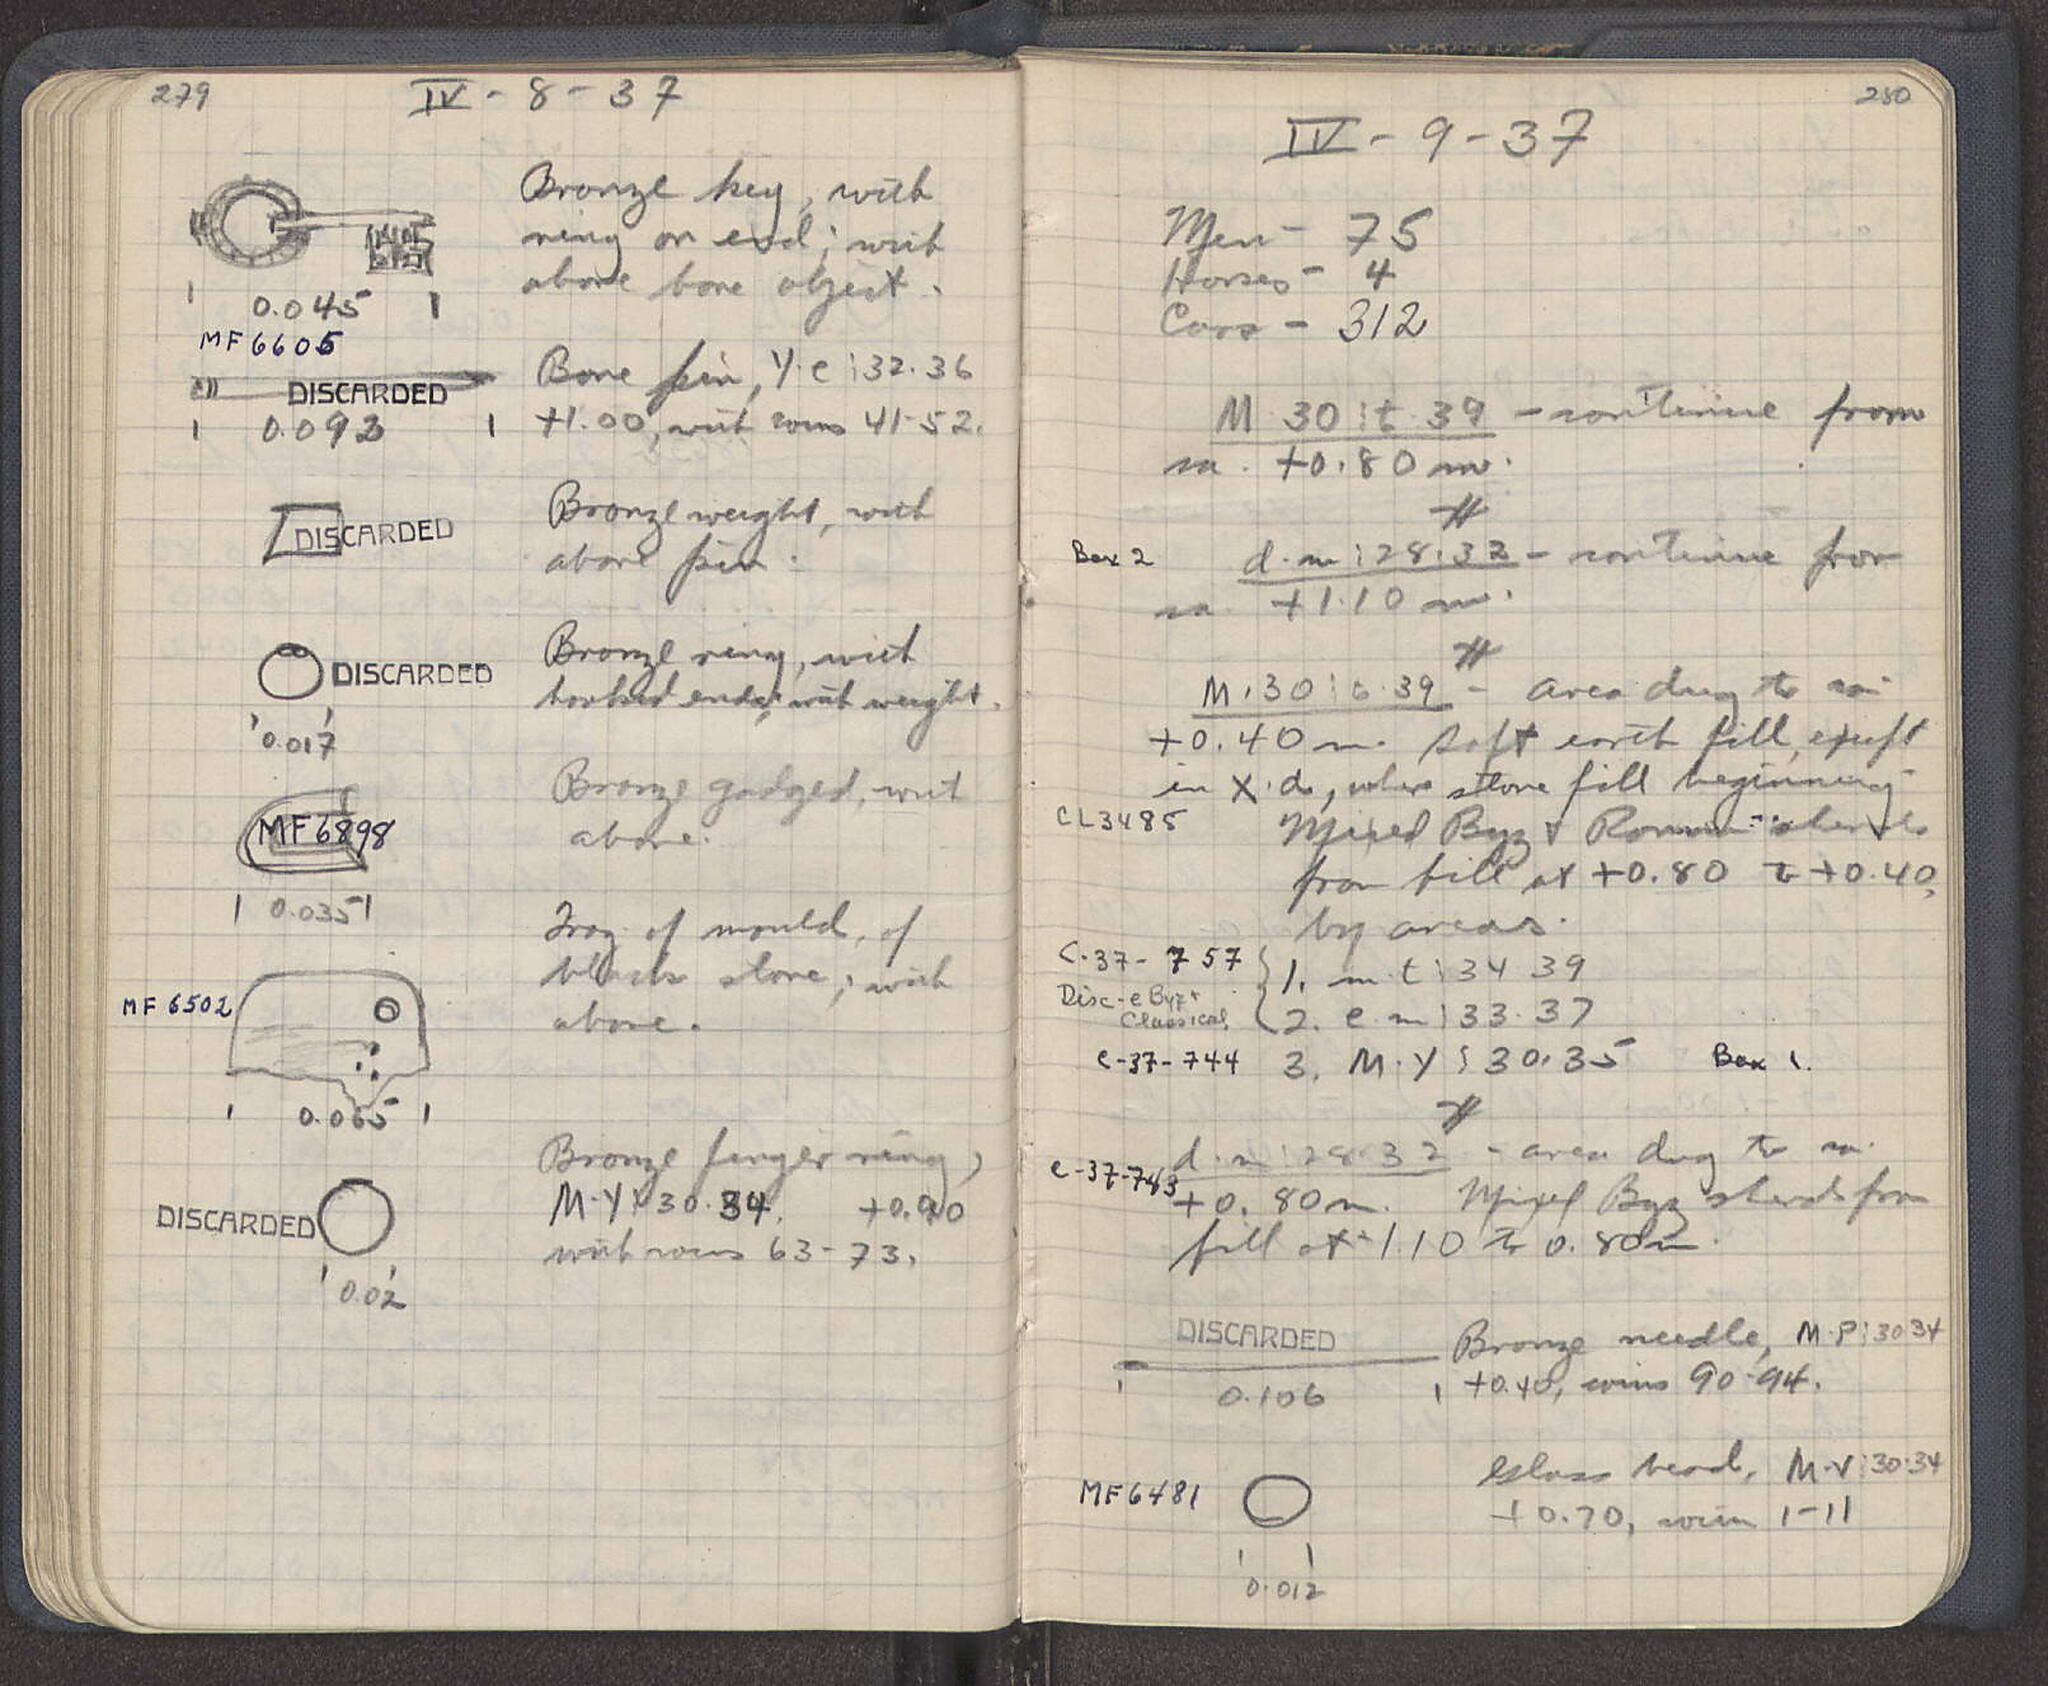 279
IV - 8 - 37
Bronze key, with
ring on end; with
above bone object.
0.045
MF 6605
Bone pin, Y·e:32·36
+1.00, with coins 41-52.
DISCARDED
0.093
Bronze weight, with
above pin.
DISCARDED
Bronze ring, with
hooked ends; with weight.
DISCARDED
0.017
Bronze gadged, with
above.
MF 6898
0.035
Frag of mould, of
black stone; with
above.
MF 6502
0.065
Bronze finger ring,
M·Y:30·34, +0.90
with coins 63-73.
DISCARDED
0.02
280
IV - 9 - 37
Men - 75
Horses - 4
Cars - 312
M·30:t·39 - continue from
ca. +0.80 m.
Box 2
d·m:28·32 - continue from
ca. +1.10 m.
M·30:t·39 - area dug to ca.
+0.40 m. Soft earth fill, except
in X·d, where stone fill beginning
CL3485
Mixed Byz & Roman sherds
from fill at +0.80 to +0.40,
by areas.
C-37-757
1. m·t:34·39
Disc-e Byz+
Classical
2. e·m:33·37
C-37-744
3. M·Y:30·35
Box 1.
d·m:28·32 - area dug to ca.
C-37-743
+0.80m. Mixed Byz sherds from
fill at 1.10 to 0.80m.
DISCARDED
0.106
Bronze needle, M·P:30·34
+0.40, coins 90-94.
MF 6481
Glass bead, M·V:30·34
+0.70, coin 1-11
0.012